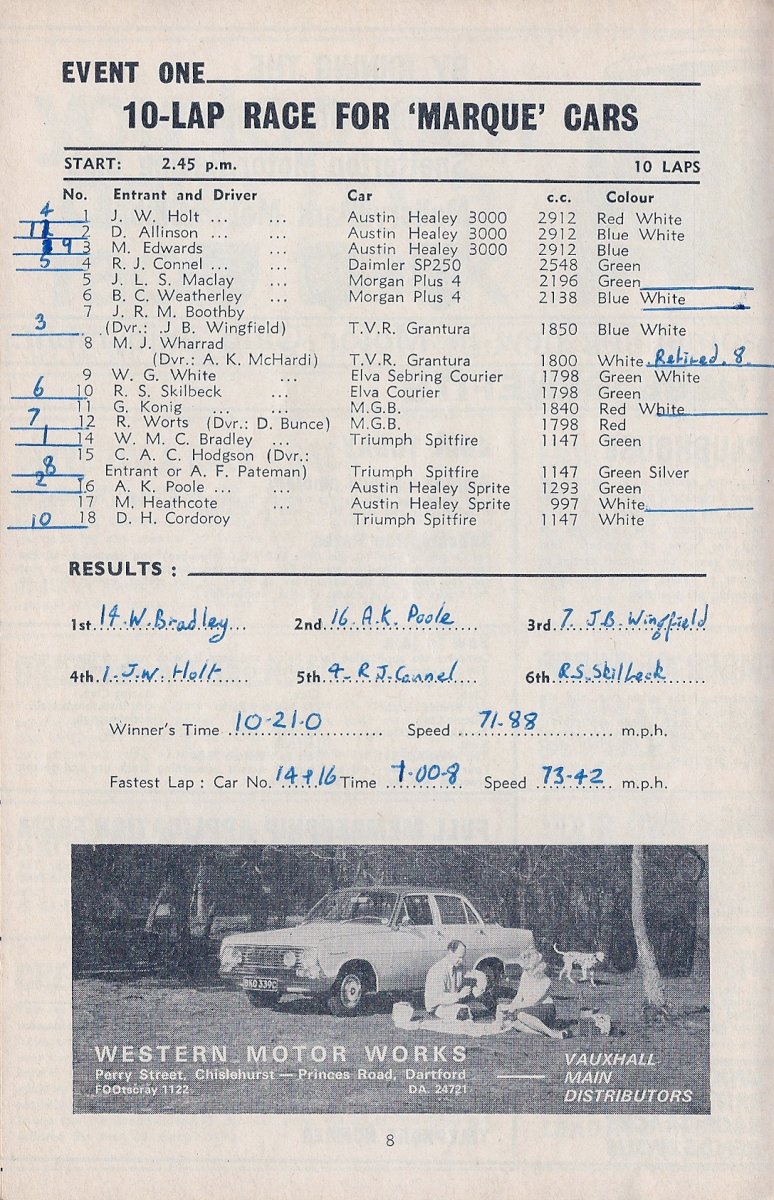 EVENT ONE
10-LAP RACE FOR ‘MARQUE’ CARS
START: 2.45 p.m. 10 LAPS
No. Entrant and Driver Car c.c. Colour
4 1 J. W. Holt ... ... Austin Healey 3000 2912 Red White
11 2 D. Allinson ... ... Austin Healey 3000 2912 Blue White
9 3 M. Edwards ... Austin Healey 3000 2912 Blue
5 4 R. J. Connel ... ... Daimler SP250 2548 Green
5 J. L. S. Maclay ... Morgan Plus 4 2196 Green
6 B. C. Weatherley ... Morgan Plus 4 2138 Blue White
7 J. R. M. Boothby
3 (Dvr.: J B. Wingfield) T.V.R. Grantura 1850 Blue White
8 M. J. Wharrad
(Dvr.: A. K. McHardi) T.V.R. Grantura 1800 White Retired. 8.
9 W. G. White ... Elva Sebring Courier 1798 Green White
6 10 R. S. Skilbeck ... Elva Courier 1798 Green
11 G. Konig ... ... M.G.B. 1840 Red White
7 12 R. Worts (Dvr.: D. Bunce) M.G.B. 1798 Red
1 14 W. M. C. Bradley ... Triumph Spitfire 1147 Green
15 C. A. C. Hodgson (Dvr.:
8 Entrant or A. F. Pateman) Triumph Spitfire 1147 Green Silver
2 16 A. K. Poole ... ... Austin Healey Sprite 1293 Green
17 M. Heathcote ... Austin Healey Sprite 997 White
10 18 D. H. Cordoroy Triumph Spitfire 1147 White
RESULTS :
1st. 14. W. Bradley 2nd. 16. A.K. Poole 3rd. 7. J.B. Wingfield
4th. 1. J.W. Holt 5th. 4- R J. Connel 6th. R.S. Skilbeck
Winner's Time 10-21.0 Speed 71.88 m.p.h.
Fastest Lap : Car No. 14 + 16 Time 1-00-8 Speed 73-42 m.p.h.
WESTERN MOTOR WORKS
Perry Street, Chislehurst — Princes Road, Dartford
FOOtscray 1122 DA. 24721
VAUXHALL
MAIN
DISTRIBUTORS
8